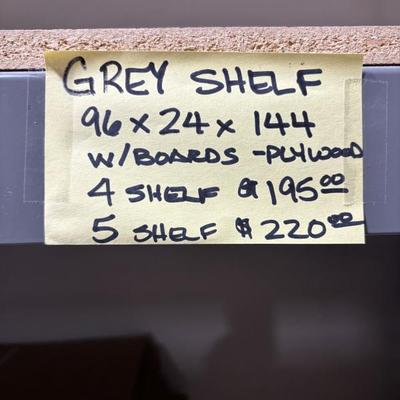 GREY SHELF
96 x 24 x 144
W/BOARDS -PLYWOOD
4 SHELF $195.00
5 SHELF $220.00